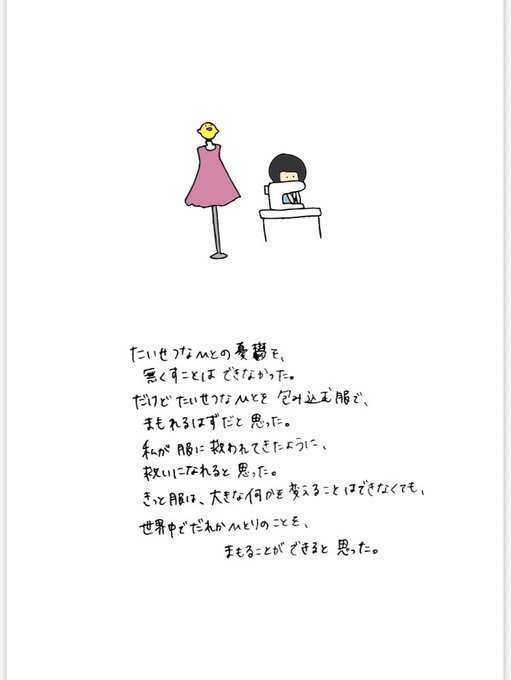 たいせつなひとの憂鬱を、
無くすことはできなかった。
だけどたいせつなひとを包み込む服で、
まもれるはずだと思った。
私が服に救われてきたように、
救いになれると思った。
きっと服は、大きな何かを変えることはできなくても、
世界中でだれかひとりのことを、
まもることができると思った。